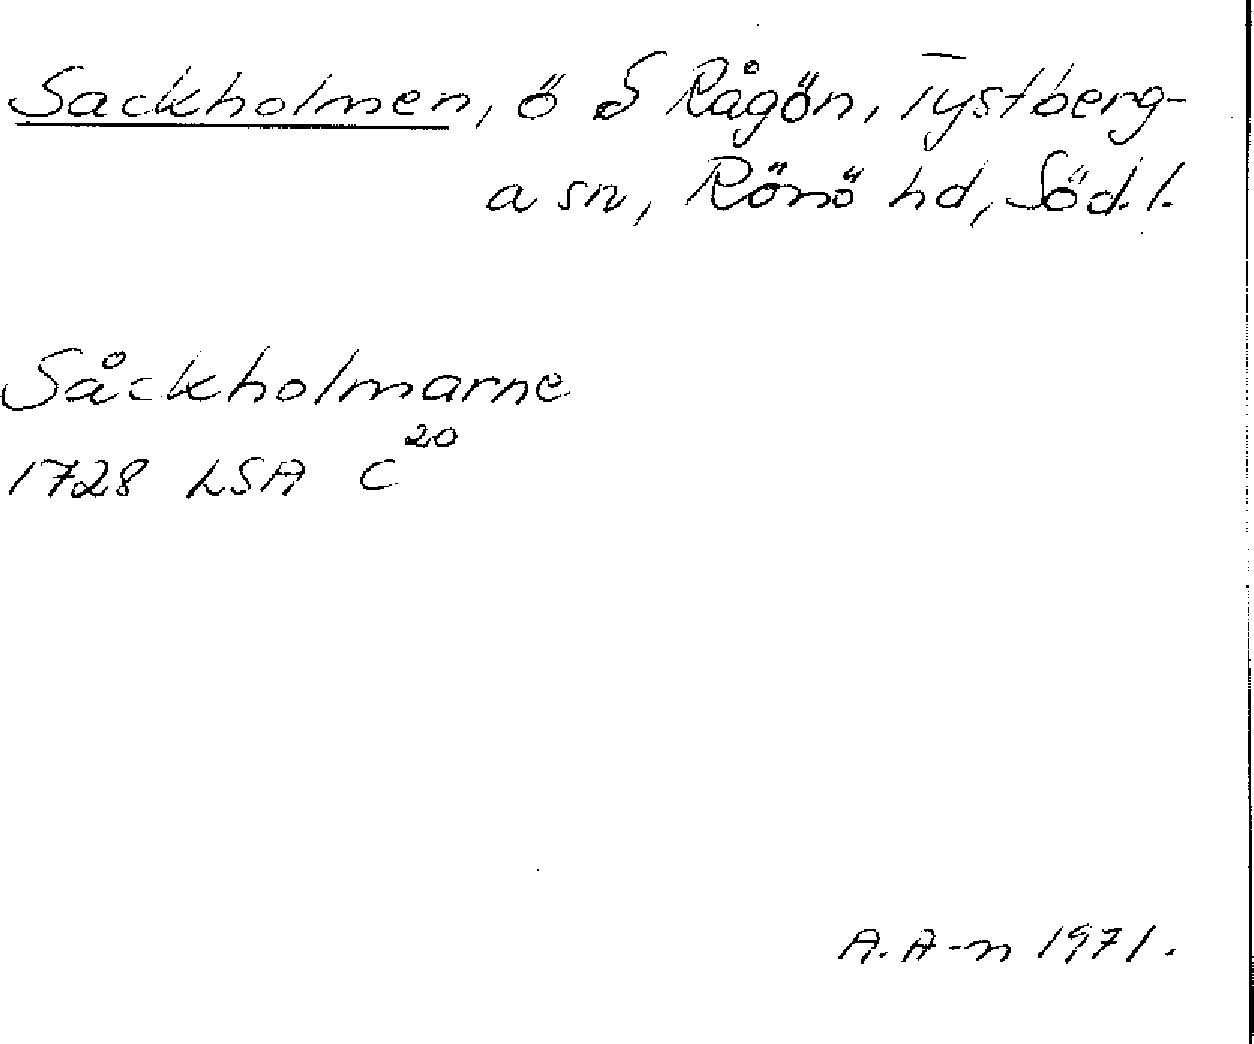 Sackholmen, ö S Rågön, Tystberg-
a sn, Rönö hd, Söd.l.
Såckholmarne
1728 LSA C 20
A. A-n 1971.